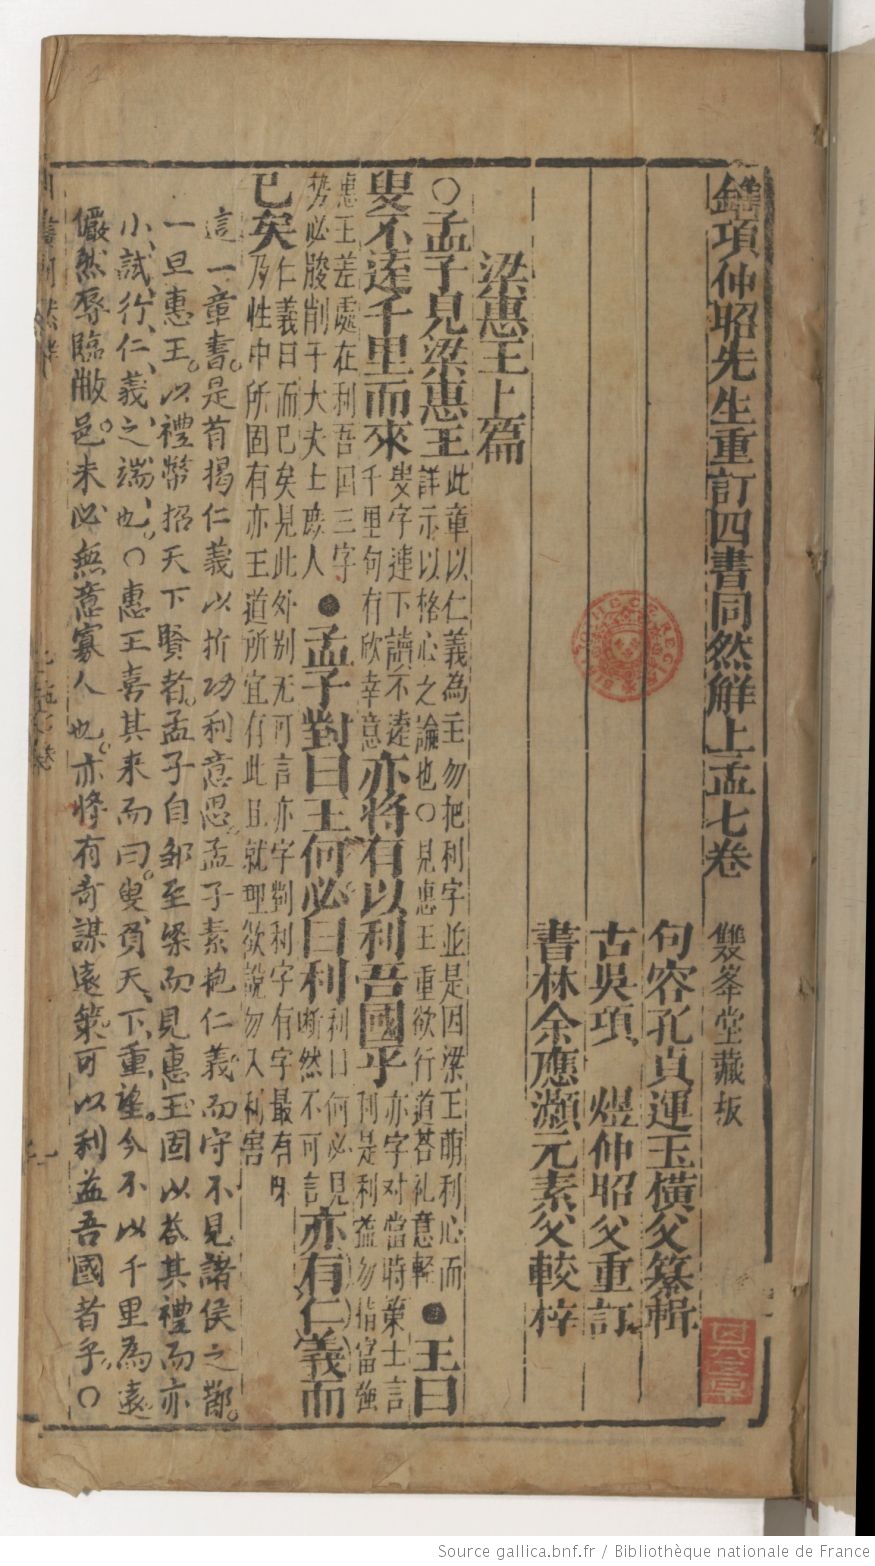 鐫項仲昭先生重訂四書同然解上孟七卷 雙峯堂藏板
句容孔貞運玉橫父纂輯
古吳項 煜仲昭父重訂
書林余應灝元素父較梓
梁惠王上篇
○孟子見梁惠王 此章以仁義為主勿把利字並是因梁王萌利心而
詳示以格心之論也○見惠王重欲行道荅礼意輕 ●王曰
叟不遠千里而來 叟字連下讀不遠
千里句有欣幸意 亦将有以利吾國乎 亦字对當時策士言
利是利益勿指富強
惠王差處在利吾囯三字
势必朘削于大夫士庶人 ●孟子對曰王何必曰利 利曰何必見
断然不可言 亦有仁義而
已矣 仁義曰而已矣見此外别无可言亦字對利字有字最有味
乃性中所固有亦王道所宜有此且就理欲說勿入利害
這一章書。是首揭仁義以折功利意思。孟子素抱仁義而守不見諸侯之節。
一旦惠王。以禮幣招天下賢者。孟子自邹至梁而見惠王固以荅其禮而亦
小試行仁義之端也。○惠王喜其來而曰。叟負天下重望。今不以千里為遠
儼然辱臨敝邑。未必無意寡人也。亦将有奇謀遠策可以利益吾國者乎。○
Source gallica.bnf.fr / Bibliothèque nationale de France